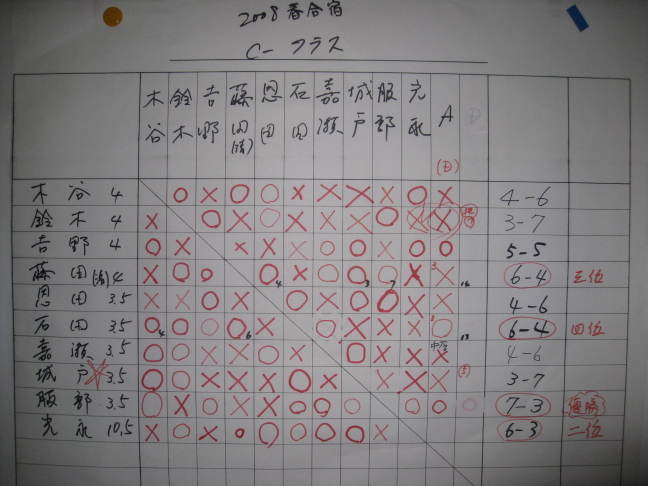 2008 春合宿
C-クラス
木谷 鈴木 吉野 藤田(清) 恩田 石田 嘉瀬 城戸 服部 光永 A (D)
木谷 4 ○ × ○ ○ × × × × ○ × 4-6
鈴木 4 × ○ × ○ × × × ○ × × 3-7
吉野 4 ○ × × × × ○ ○ × ○ ○ 5-5
藤田(清) 4 × ○ ○ ○ × ○ ○ ○ × × 6-4 三位
恩田 3.5 × × ○ × ○ × ○ ○ × × 4-6
石田 3.5 ○ ○ ○ ○ × ○ × × × ○ 6-4 四位
嘉瀬 3.5 ○ ○ × × ○ × ○ × × × 4-6
城戸 3.5 ○ ○ × × × ○ × × × × 3-7
服部 3.5 ○ × ○ × × ○ ○ ○ ○ ○ 7-3 優勝
光永 10.5 × ○ × ○ ○ ○ ○ ○ × 6-3 二位